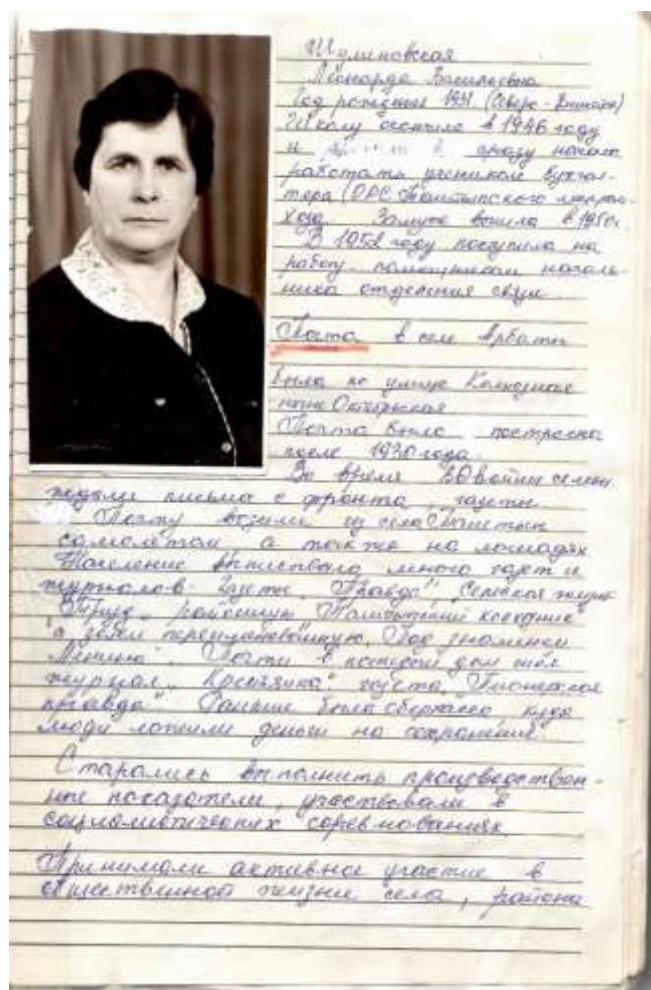 Шулиновская
Леонарда Васильевна
Год рождения 1931
Школу окончила в 1946 году
и сразу начала
работать учеником бухгал-
тера (ОРС Таштыпского
Замуж вышла в 1950г.
В 1952 году поступила на
работу помощником началь-
ника отделения связи
Почта в селе Арбаты
была по улице Колхозная
ныне Октябрьская
Почта была построена
после 1930 года.
Во время ВОВойны семьи
ждали письма с фронта, газеты
Почту возили из села Таштып
самолётом а также на лошадях
Население выписывало много газет и
журналов. Газеты "Правда", "Сельская жизнь"
"Труд", районную Таштыпский колхозник
а затем переименованную "Под знаменем
Ленина". Почти в каждый дом шёл
журнал "Крестьянка", газета "Пионерская
правда" Раньше была сберкасса, куда
люди ложили деньги на сохранение
Старались выполнить производствен-
ные показатели, участвовали в
социалистических соревнованиях
Принимали активное участие в
общественной жизни села, района